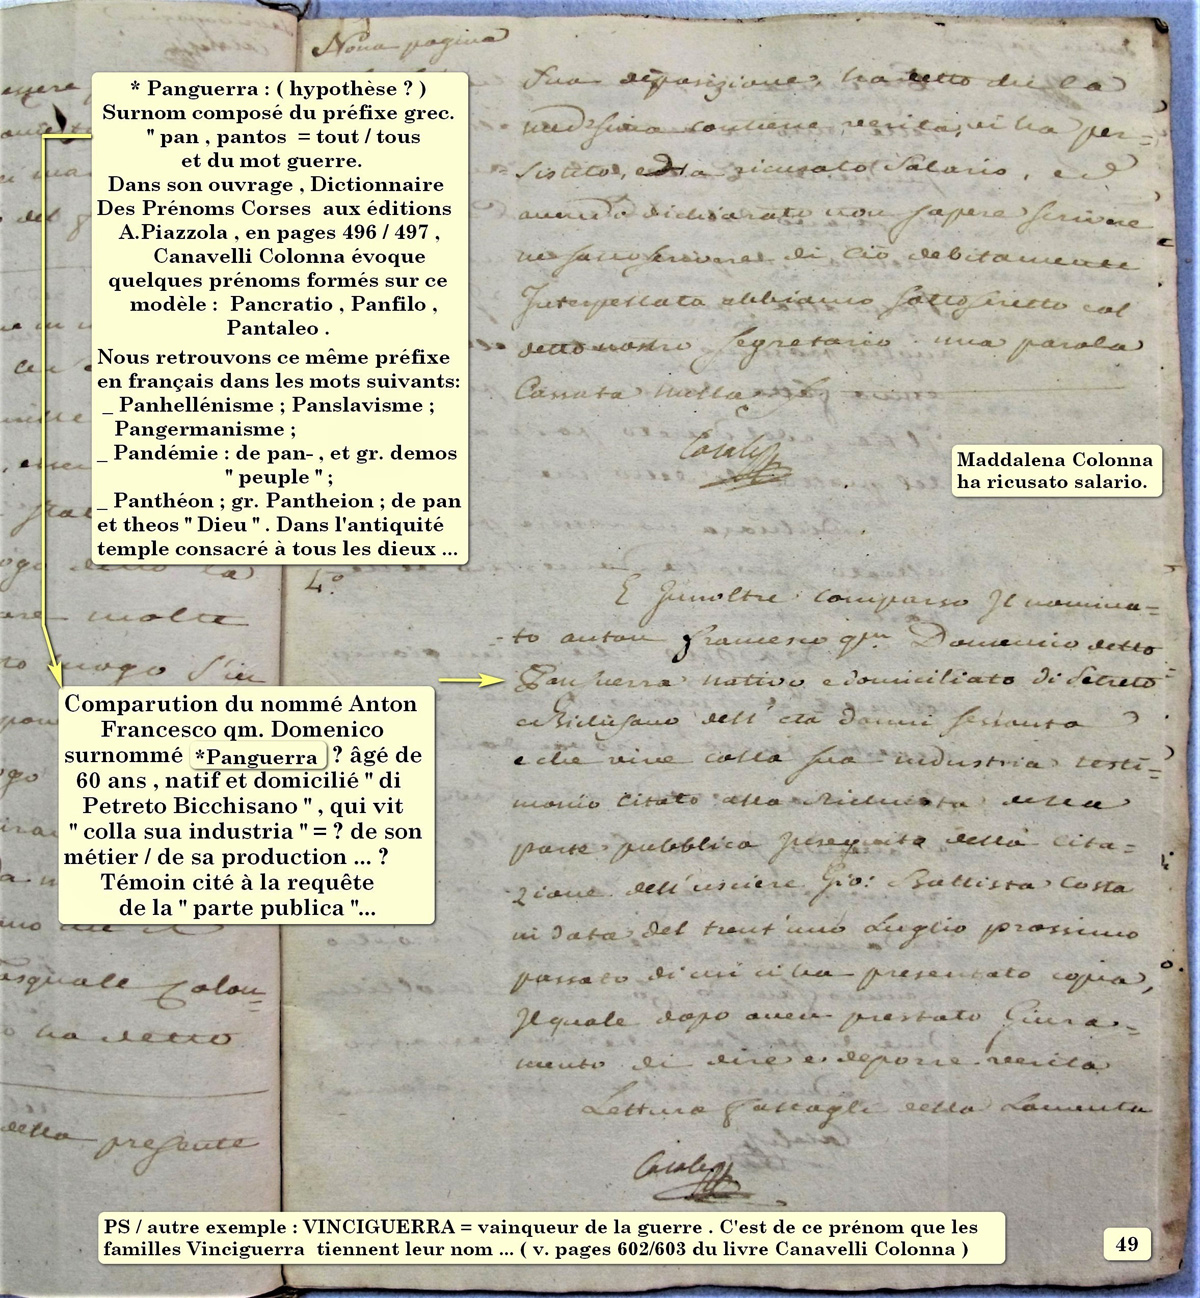 Nona pagina
* Panguerra : ( hypothèse ? )
Surnom composé du préfixe grec.
" pan , pantos = tout / tous
et du mot guerre.
Dans son ouvrage , Dictionnaire
Des Prénoms Corses aux éditions
A.Piazzola , en pages 496 / 497 ,
Canavelli Colonna évoque
quelques prénoms formés sur ce
modèle : Pancratio , Panfilo ,
Pantaleo .
Nous retrouvons ce même préfixe
en français dans les mots suivants:
_ Panhellénisme ; Panslavisme ;
Pangermanisme ;
_ Pandémie : de pan- , et gr. demos
" peuple " ;
_ Panthéon ; gr. Pantheion ; de pan
et theos " Dieu " . Dans l'antiquité
temple consacré à tous les dieux ...
Sua deposizione, ha detto che la
medesima contiene verità, vi ha per=
sistito, ed ha ricusato Salario, ed
avendo dichiarato non sapere scrivere
di ciò debitamente
Interpellata abbiamo sottoscritto col
detto nostro Segretario una parola
Cassata nulla
Casale
Maddalena Colonna
ha ricusato salario.
4.°
E Innoltre comparso Il nomina=
to anton francesco qm. Domenico detto
Panguerra nativo e domiciliato di Petreto
e Bichisano dell'età d'anni sessanta
e che vive colla sua industria testi=
monio citato alla Richiesta della
parte pubblica Inseguita della cita=
zione dell'usciere Gio: Battista Costa
in data del trent'uno Luglio prossimo
passato di cui ci ha presentato copia,
Il quale dopo aver prestato Giura=
mento di dire e deporre verità
Lettura fattagli della Lamenta
Casale
Comparution du nommé Anton
Francesco qm. Domenico
surnommé *Panguerra ? âgé de
60 ans , natif et domicilié " di
Petreto Bicchisano " , qui vit
" colla sua industria " = ? de son
métier / de sa production ... ?
Témoin cité à la requête
de la " parte publica "...
molte
luogo
Colon=
ha detto
della presente
PS / autre exemple : VINCIGUERRA = vainqueur de la guerre . C'est de ce prénom que les
familles Vinciguerra tiennent leur nom ... ( v. pages 602/603 du livre Canavelli Colonna )
49